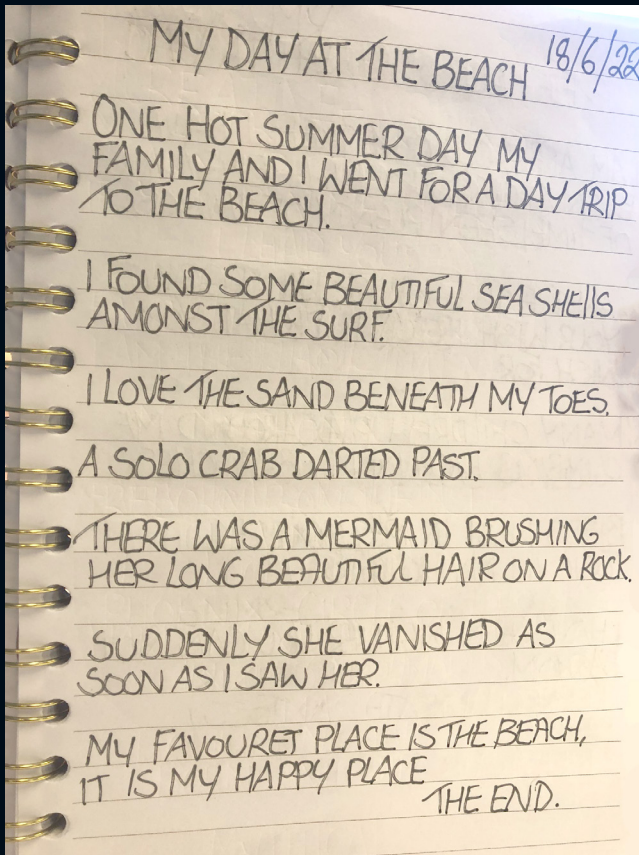 MY DAY AT THE BEACH 18/6/22
ONE HOT SUMMER DAY MY
FAMILY AND I WENT FOR A DAY TRIP
TO THE BEACH.
I FOUND SOME BEAUTIFUL SEA SHEllS
AMONST THE SURF.
I LOVE THE SAND BENEATH MY TOES.
A SOLO CRAB DARTED PAST.
THERE WAS A MERMAID BRUSHING
HER LONG BEAUTIFUL HAIR ON A ROCK.
SUDDENLY SHE VANISHED AS
SOON AS I SAW HER.
MY FAVOURET PLACE IS THE BEACH,
IT IS MY HAPPY PLACE
THE END.